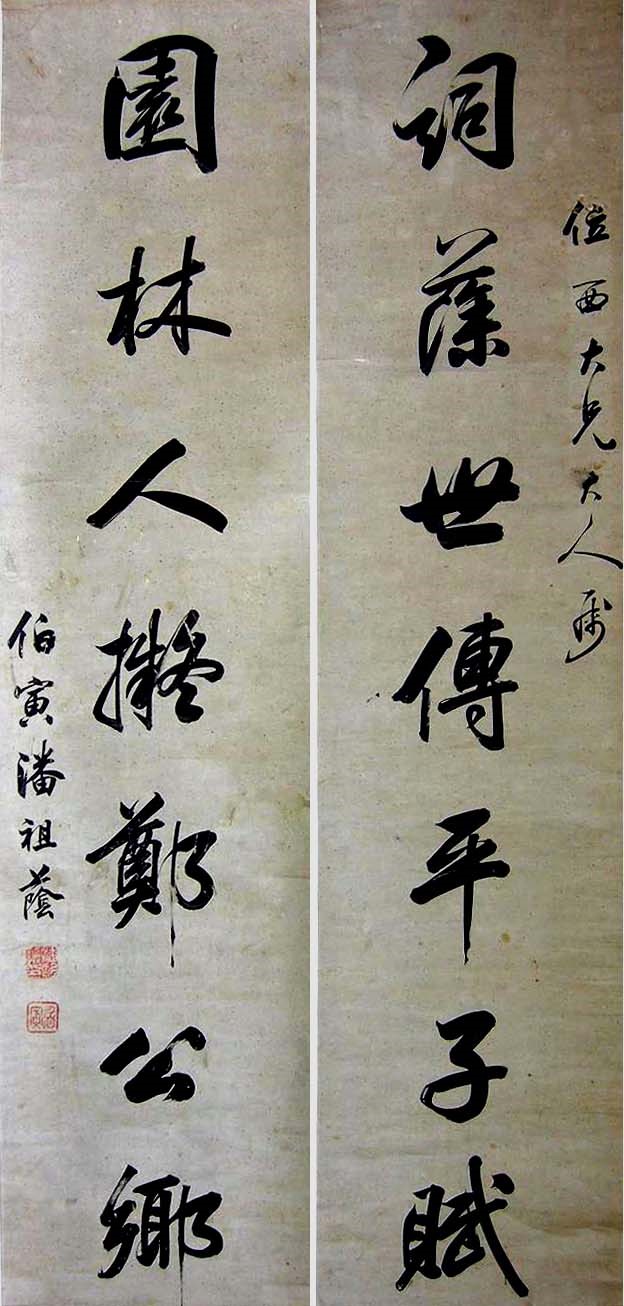 西大兄大人属
詞藻世傳平子賦
園林人擬鄭公鄉
伯寅潘祖蔭